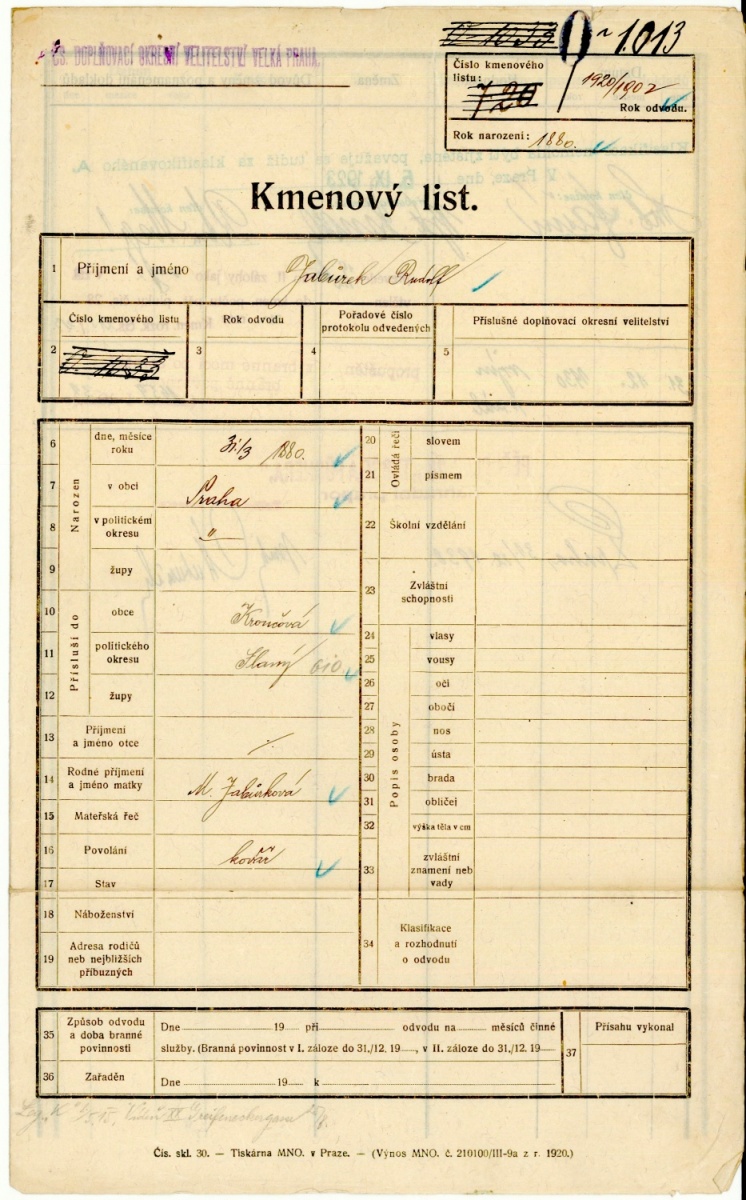 ČS. DOPLŇOVACÍ OKRESNÍ VELITELSTVÍ VELKÁ PRAHA.
0-1033 1.013
Číslo kmenového listu: 720
1920/1902
Rok odvodu.
Rok narození: 1880.
Kmenový list.
1 Příjmení a jméno Jabůrek Rudolf
2 Číslo kmenového listu 0-1033
3 Rok odvodu
4 Pořadové číslo protokolu odvedených
5 Příslušné doplňovací okresní velitelství
Narozen
6 dne, měsíce roku 31/3 1880.
7 v obci Praha
8 v politickém okresu "
9 župy
Přísluší do
10 obce
11 politického okresu Slaný 010
12 župy
13 Příjmení a jméno otce ./.
14 Rodné příjmení a jméno matky M. Jabůrková
15 Mateřská řeč
16 Povolání kovář
17 Stav
18 Náboženství
19 Adresa rodičů neb nejbližších příbuzných
Ovládá řeči
20 slovem
21 písmem
22 Školní vzdělání
23 Zvláštní schopnosti
Popis osoby
24 vlasy
25 vousy
26 oči
27 obočí
28 nos
29 ústa
30 brada
31 obličej
32 výška těla v cm
33 zvláštní znamení neb vady
34 Klasifikace a rozhodnutí o odvodu
35 Způsob odvodu a doba branné povinnosti
Dne 19 při odvodu na měsíců činné
služby. (Branná povinnost v I. záloze do 31./12. 19 , v II. záloze do 31./12. 19
36 Zařaděn
Dne 19 k
37 Přísahu vykonal
Čís. skl. 30. — Tiskárna MNO. v Praze. — (Výnos MNO. č. 210100/III-9a z r. 1920.)